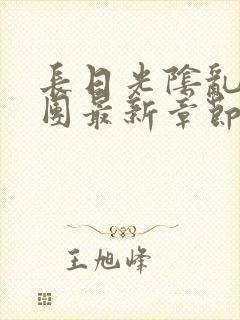 長日光陰亂
團最新章節
王旭峰